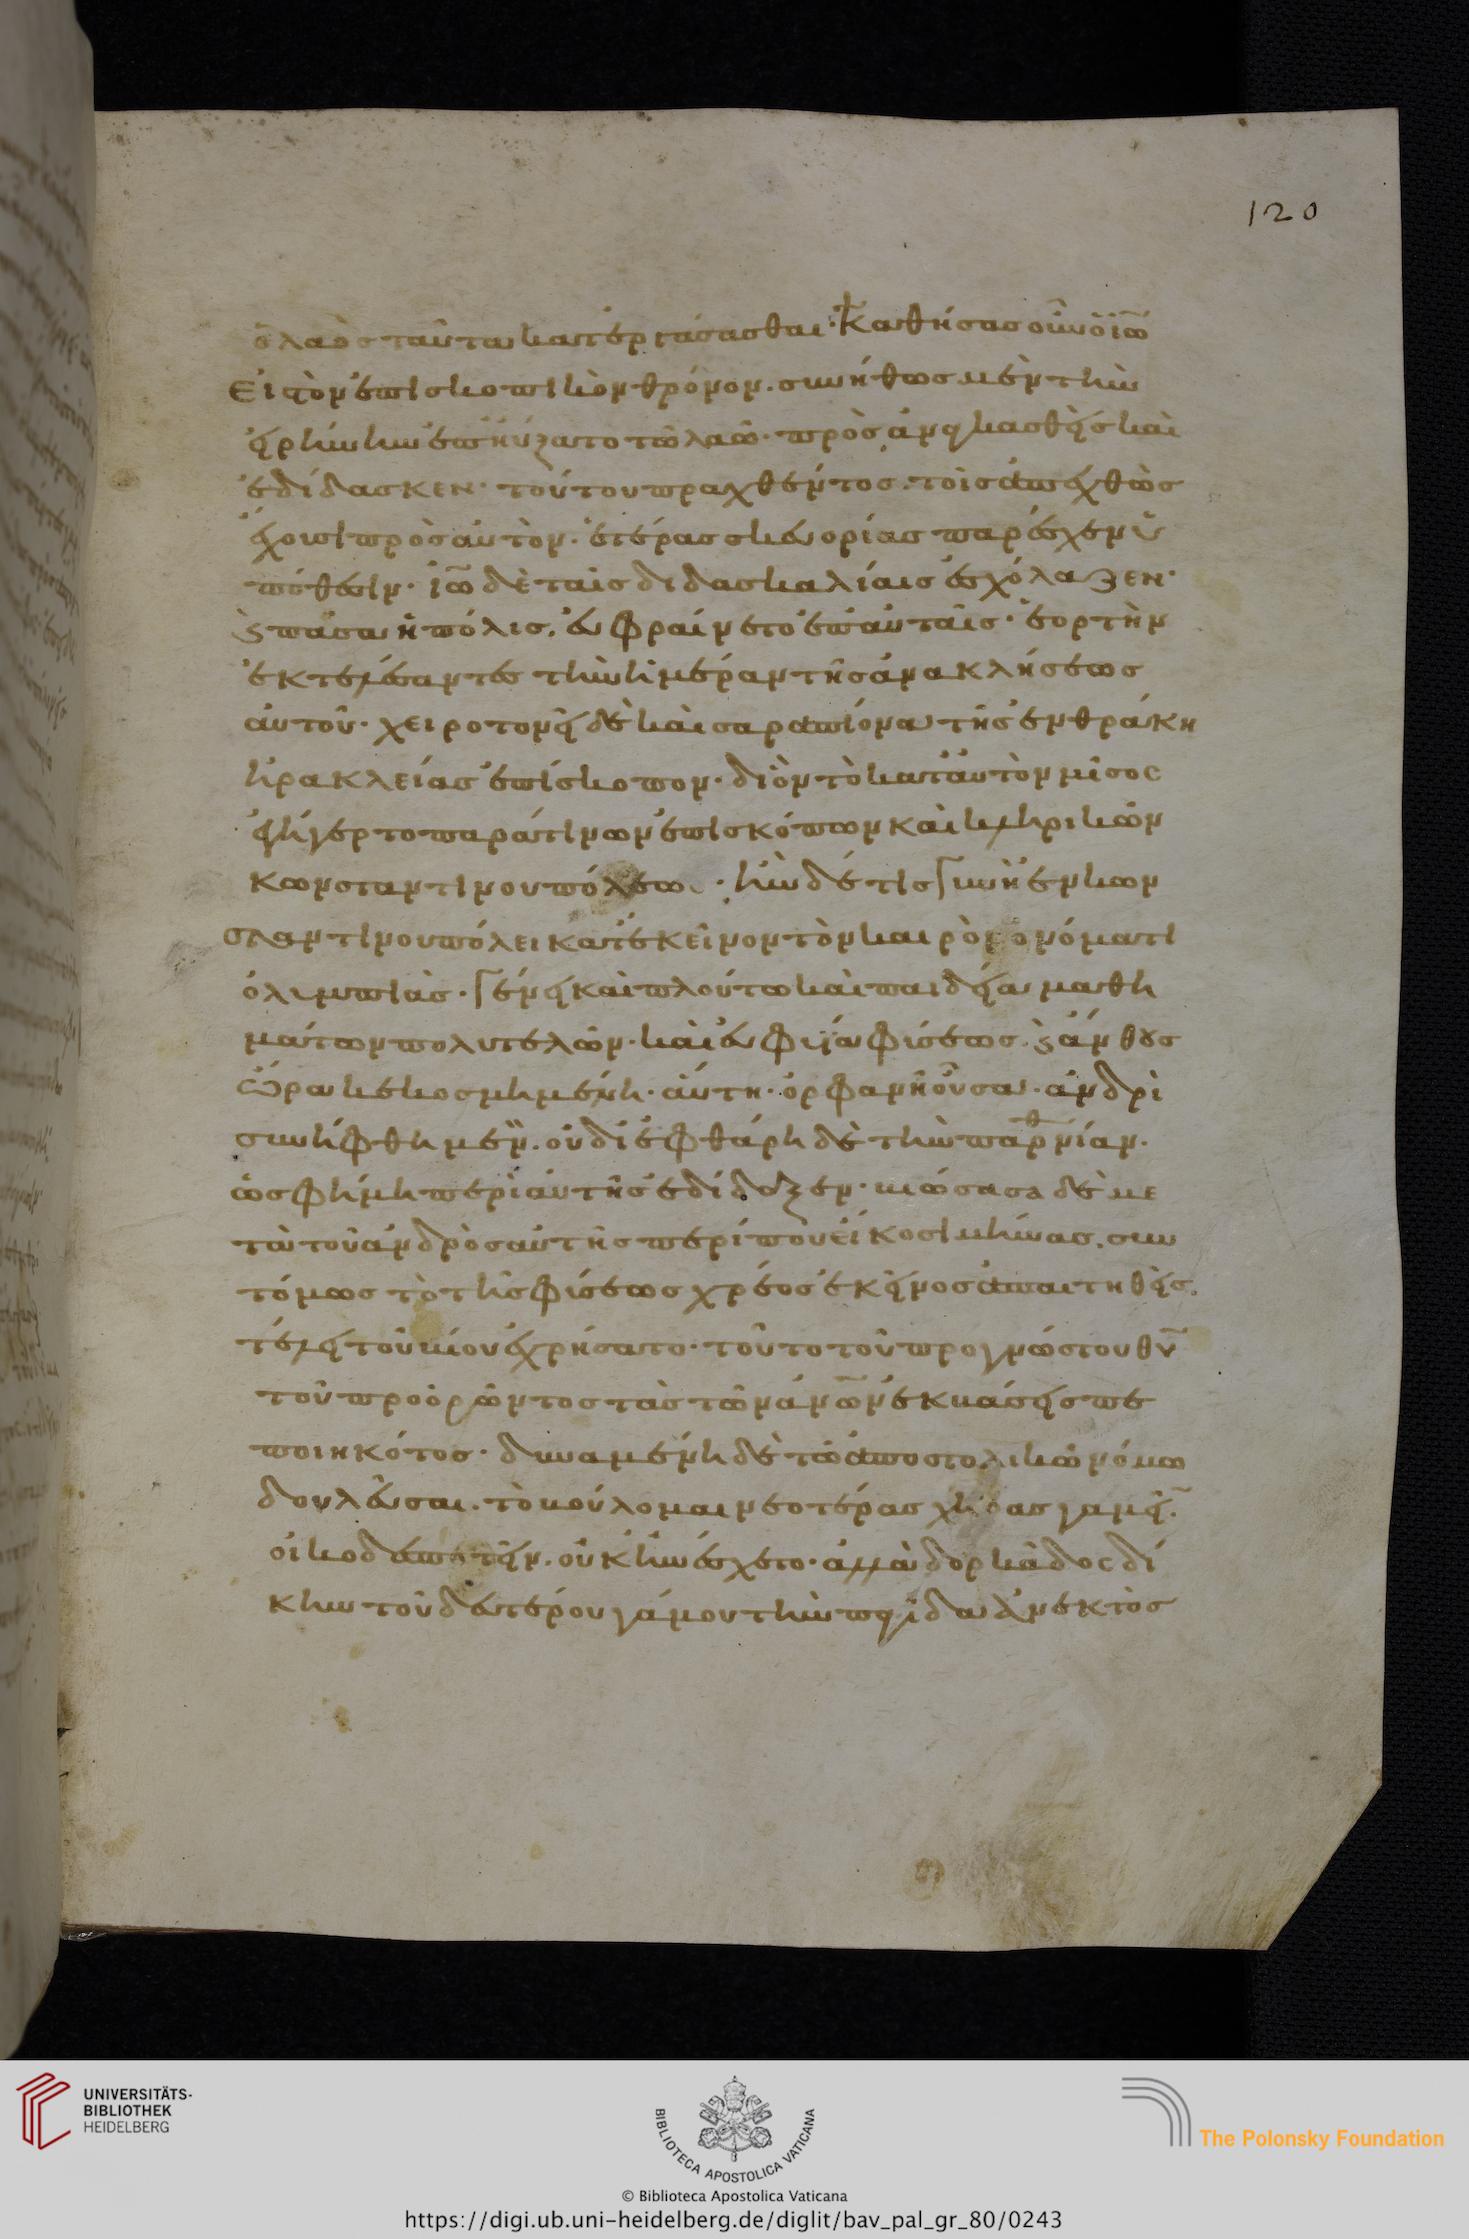 120
ὁ λαὸς ταῦτα κατεργάσασθαι · Καθήσας οὖν ὁ ἰω
Εἰς τὸν ἐπισκοπικὸν θρόνον . συνήθως μὲν τὴν
εἰρήνην ἐπηύξατο τῶ λαῶ · πρὸς ἀναγκασθεὶς καὶ
ἐδίδασκεν · τούτου πραχθέντος . τοῖς ἀπεχθῶς
ἔχουσι πρὸς αὐτὸν · ἑτέρας σκευορίας παρέσχεν
ἰω δὲ ταῖς διδασκαλίαις ἐσχόλαζεν ·
πᾶσα ἡ πόλις . εὐφραίνετο ἐπ αὐταῖς · ἑορτὴν
ἐκτελέσαντες τὴν ἡμέραν τῆς ἀνακλήσεως
αὐτοῦ · χειροτονεῖ δὲ καὶ σαραπίονα τῆς ἐν θράκη
ἡρακλείας ἐπίσκοπον · δι ὃν τὸ κατ αὐτὸν μῖσος
ἐξήγερτο παρά τινων ἐπισκόπων καὶ κληρικῶν
κωνσταντινουπόλεως · ἦν δέ τις γυνὴ ἐν κων
σταντινουπόλει κατ ἐκεῖνον τὸν καιρὸν ὀνόματι
ὀλυμπιὰς · γένει καὶ πλούτω καὶ παιδεία μαθη
μάτων πολυτελῶν · καὶ εὐφυία φύσεως . ἄνθους
ὥρα κεκοσμημένη · αὕτη · ὀρφανὴ οὖσα · ἀνδρὶ
συνήφθη μὲν . οὐ διεφθάρη δὲ τὴν παρθνίαν .
ὡς φήμη περὶ αὐτῆς ἐδίδαξεν · βιώσασα δὲ με
τὰ τοῦ ἀνδρὸς αὐτῆς περί που εἴκοσι μῆνας . συν
τόμως τὸ τῆς φύσεως χρέος ἐκεῖνος ἀπαιτηθεὶς .
τέλει τοῦ βίου ἐχρήσατο · τοῦτο τοῦ προγνώστου θυ
τοῦ προορῶντος τὰς τῶν ανων ἐκβάσεις πε
ποιηκότος · δυναμένη δὲ τῶ ἀποστολικῶ νόμω
δουλεῦσαι . τὸ βούλομαι νεοτέρας χήρας γαμεῖ
οἰκοδεσποτεῖν . οὐκ ἠνέσχετο · ἀλλὰ δορκάδος δί
κην τοῦ δευτέρου γάμου τὴν παγίδα ἀνεκτὸς
UNIVERSITÄTS-
BIBLIOTHEK
HEIDELBERG
BIBLIOTECA APOSTOLICA VATICANA
The Polonsky Foundation
© Biblioteca Apostolica Vaticana
https://digi.ub.uni-heidelberg.de/diglit/bav_pal_gr_80/0243